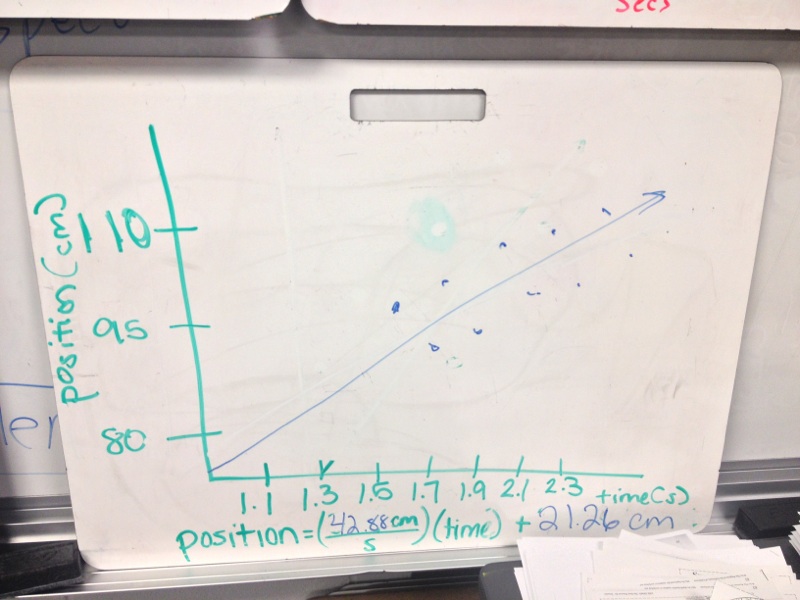 secs
110
position (cm)
95
80
1.1 1.3 1.5 1.7 1.9 2.1 2.3 time(s)
position = (42.88 cm/s)(time) + 21.26 cm